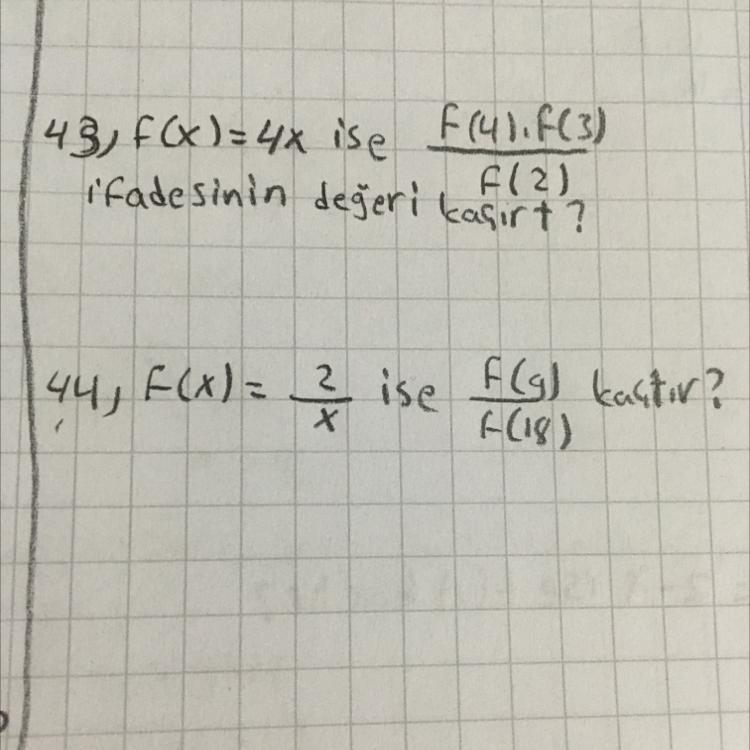 43, f(x)=4x ise f(4).f(3)
f(2)
ifadesinin değeri kaçırt?
44, f(x)= 2/x ise f(9)/f(18) kaçtır?